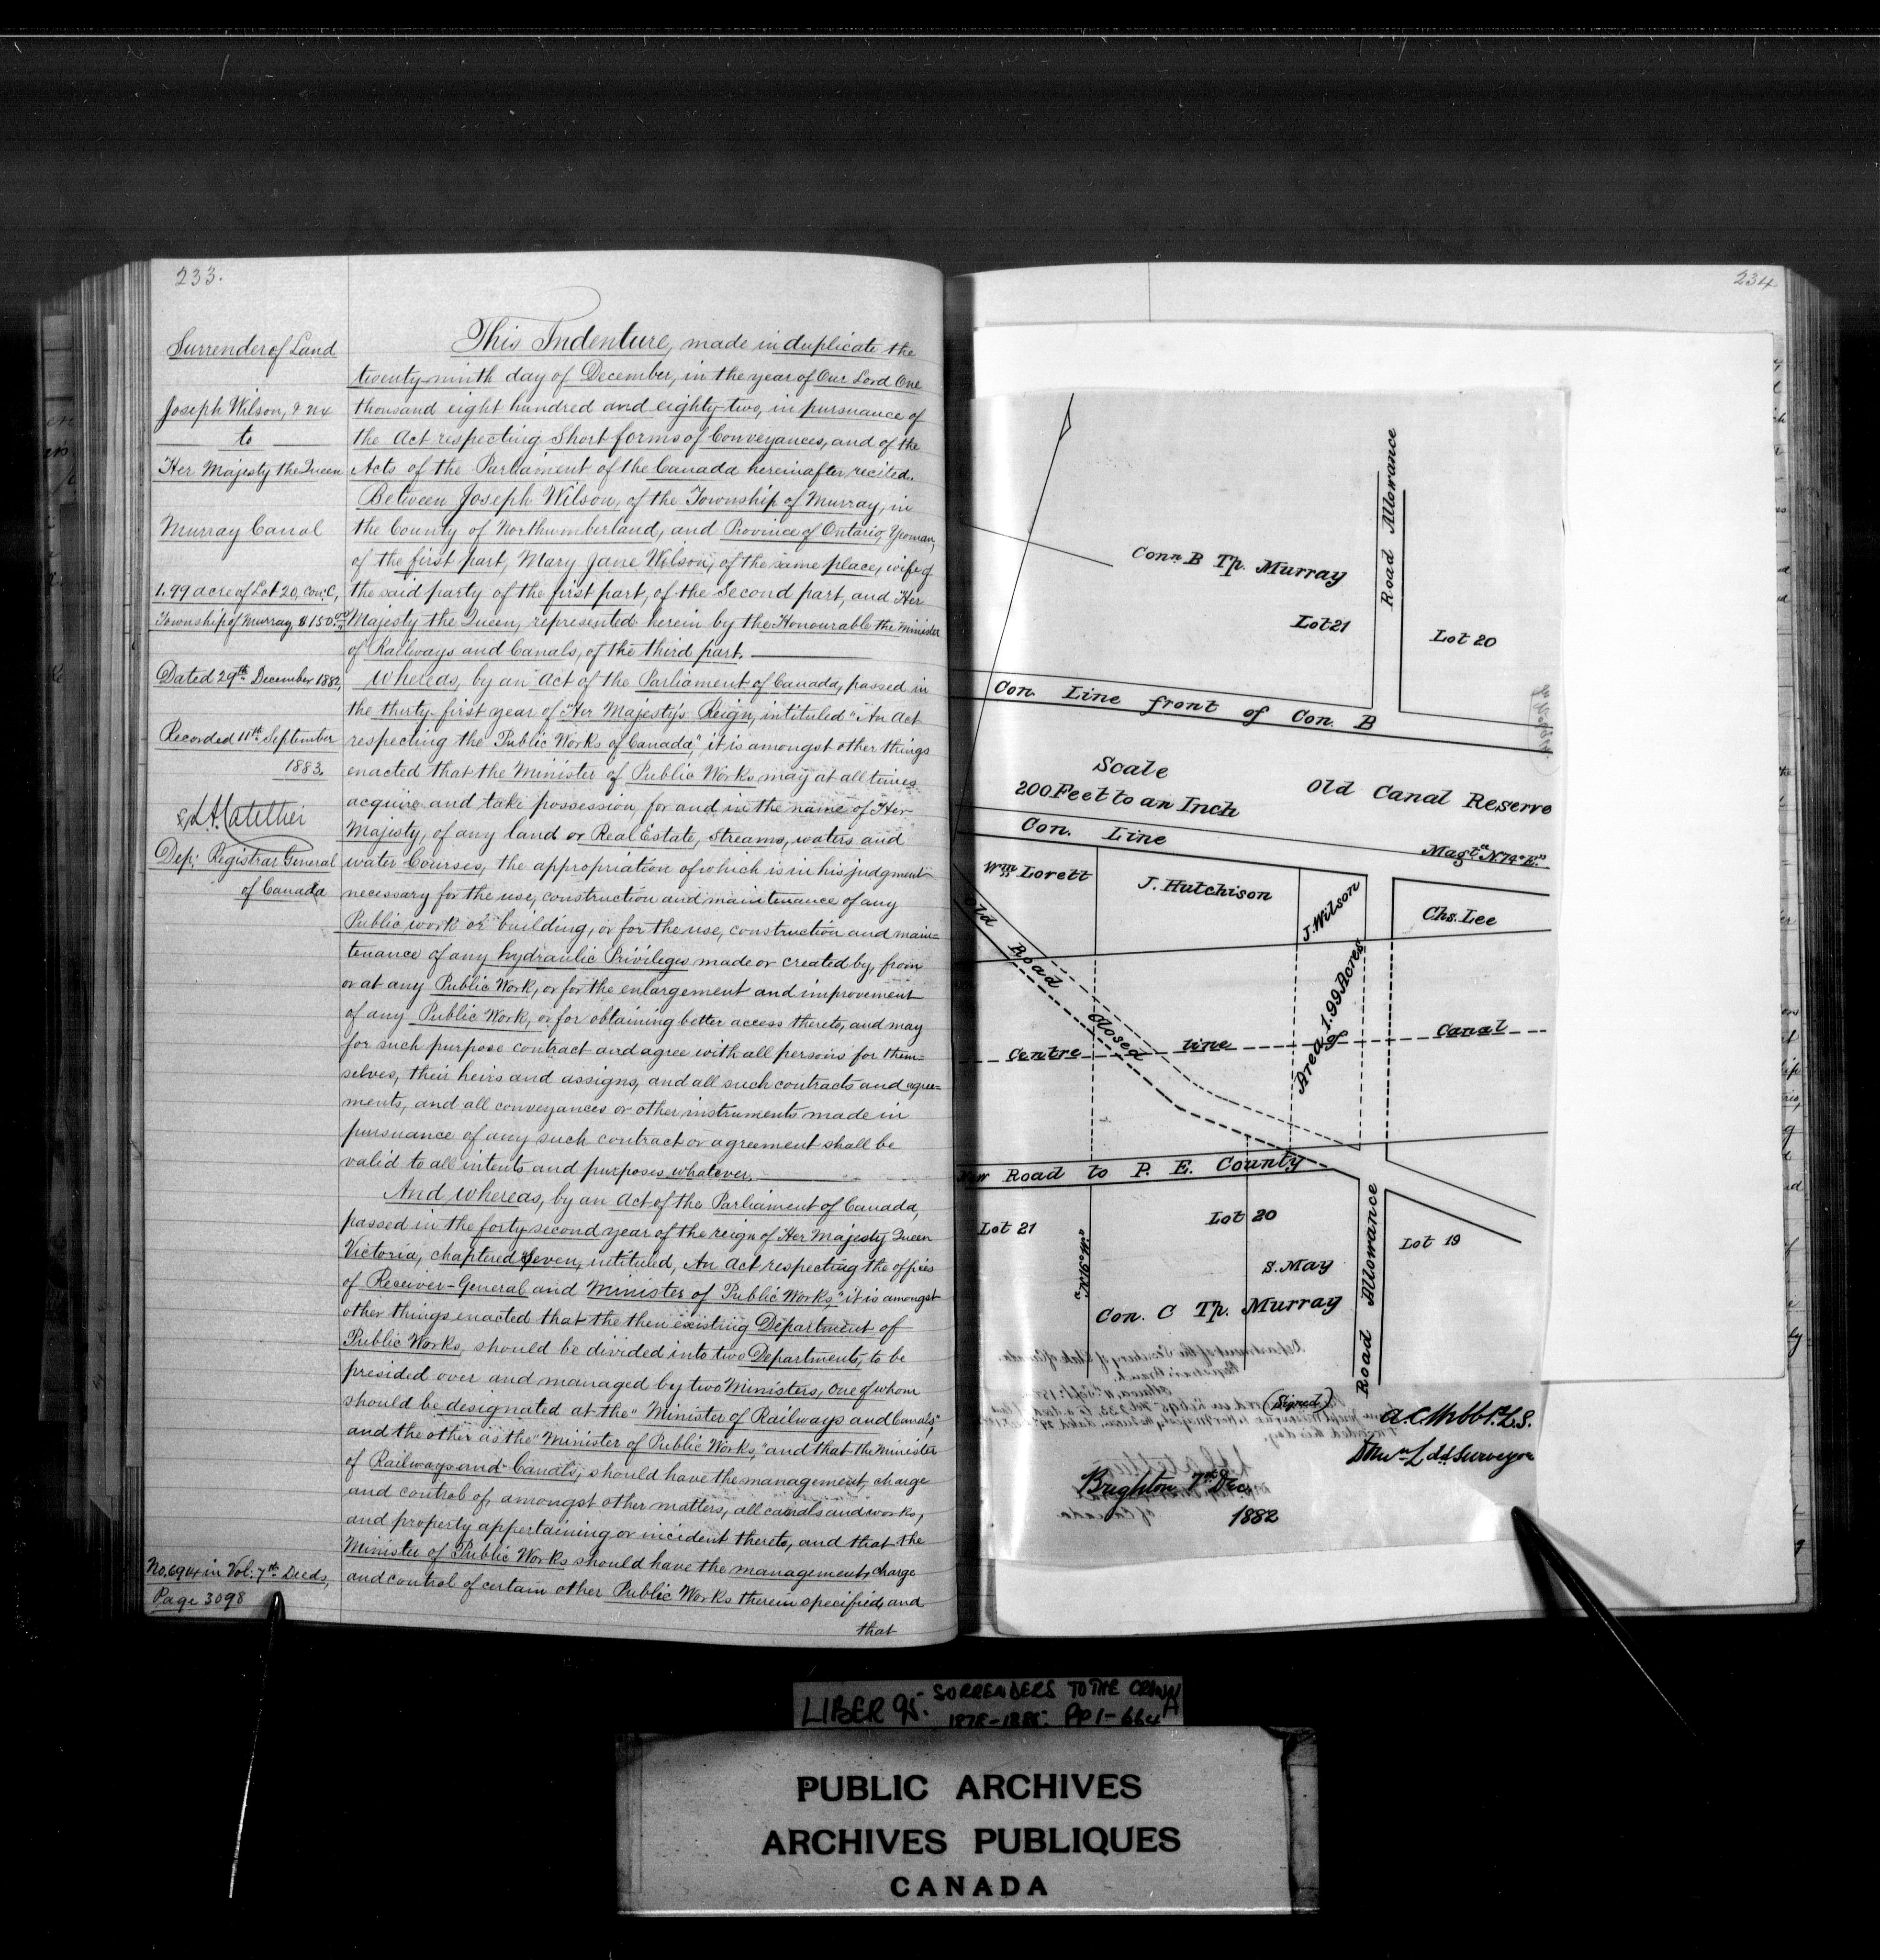 233.
Surrender of Land
Joseph Wilson, & ux
to
Her Majesty the Queen
Murray Canal
1.99 acre of Lot 20, Con. C,
Township of Murray, $150.00
Dated 29th December 1882,
Recorded 11th September
1883.
Dep: Registrar General
of Canada
No. 6944 in Vol. 7th Deeds,
Page 3098
This Indenture, made in duplicate the
twenty-ninth day of December, in the year of Our Lord One
thousand eight hundred and eighty-two, in pursuance of
the Act respecting Short forms of Conveyances, and of the
Acts of the Parliament of the Canada hereinafter recited.
Between Joseph Wilson, of the Township of Murray, in
the County of Northumberland, and Province of Ontario, Yeoman,
of the first part, Mary Jane Wilson, of the same place, wife of
the said party of the first part, of the Second part, and Her
Majesty the Queen, represented herein by the Honourable the Minister
of Railways and Canals, of the third part.
Whereas, by an Act of the Parliament of Canada, passed in
the thirty-first year of Her Majesty's Reign, intituled "An Act
respecting the Public Works of Canada," it is amongst other things
enacted that the Minister of Public Works may at all times
acquire and take possession for and in the name of Her
Majesty, of any land or Real Estate, Streams, waters and
water Courses, the appropriation of which is in his judgment
necessary for the use, construction and maintenance of any
Public work or building, or for the use, construction and main=
tenance of any hydraulic Privileges made or created by, from
or at any Public Work, or for the enlargement and improvement
of any Public Work, or for obtaining better access thereto, and may
for such purpose contract and agree with all persons for them=
selves, their heirs and assigns, and all such contracts and agree=
ments, and all conveyances or other instruments made in
pursuance of any such contract or agreement shall be
valid to all intents and purposes whatever.
And whereas, by an Act of the Parliament of Canada,
passed in the forty second year of the reign of Her Majesty Queen
Victoria, chaptered Seven, intituled, An Act respecting the offices
of Receiver-General and Minister of Public Works," it is amongst
other things enacted that the then existing Department of
Public Works, should be divided into two Departments, to be
presided over and managed by two Ministers, one of whom
should be designated at the "Minister of Railways and Canals,"
and the other as the "Minister of Public Works," and that the Minister
of Railways and Canals, should have the management, charge
and control of, amongst other matters, all canals and works,
and property appertaining or incident thereto, and that the
Minister of Public Works should have the management, charge
and control of certain other Public Works therein specified, and
that
234
Road Allowance
Conn. B Tp. Murray
Lot 21
Lot 20
Con. Line front of Con. B
Scale
200 Feet to an Inch
Old Canal Reserve
Con. Line
Magtc N 74° E.
Wm Lorett
J. Hutchison
J. Wilson
Chs. Lee
Old Road Closed
Area 1.99 Acres
Centre line of Canal
New Road to P. E. County
Lot 21
Lot 20
Lot 19
N 16° W.
S. May
Con. C Tp. Murray
Road Allowance
(Signed)
A. C. Webb P. L. S.
Surveyor
Brighton 7th Dec.
1882
LIBER 95. SURRENDERS TO THE CROWN
1878-1885. PP 1-664A
PUBLIC ARCHIVES
ARCHIVES PUBLIQUES
CANADA